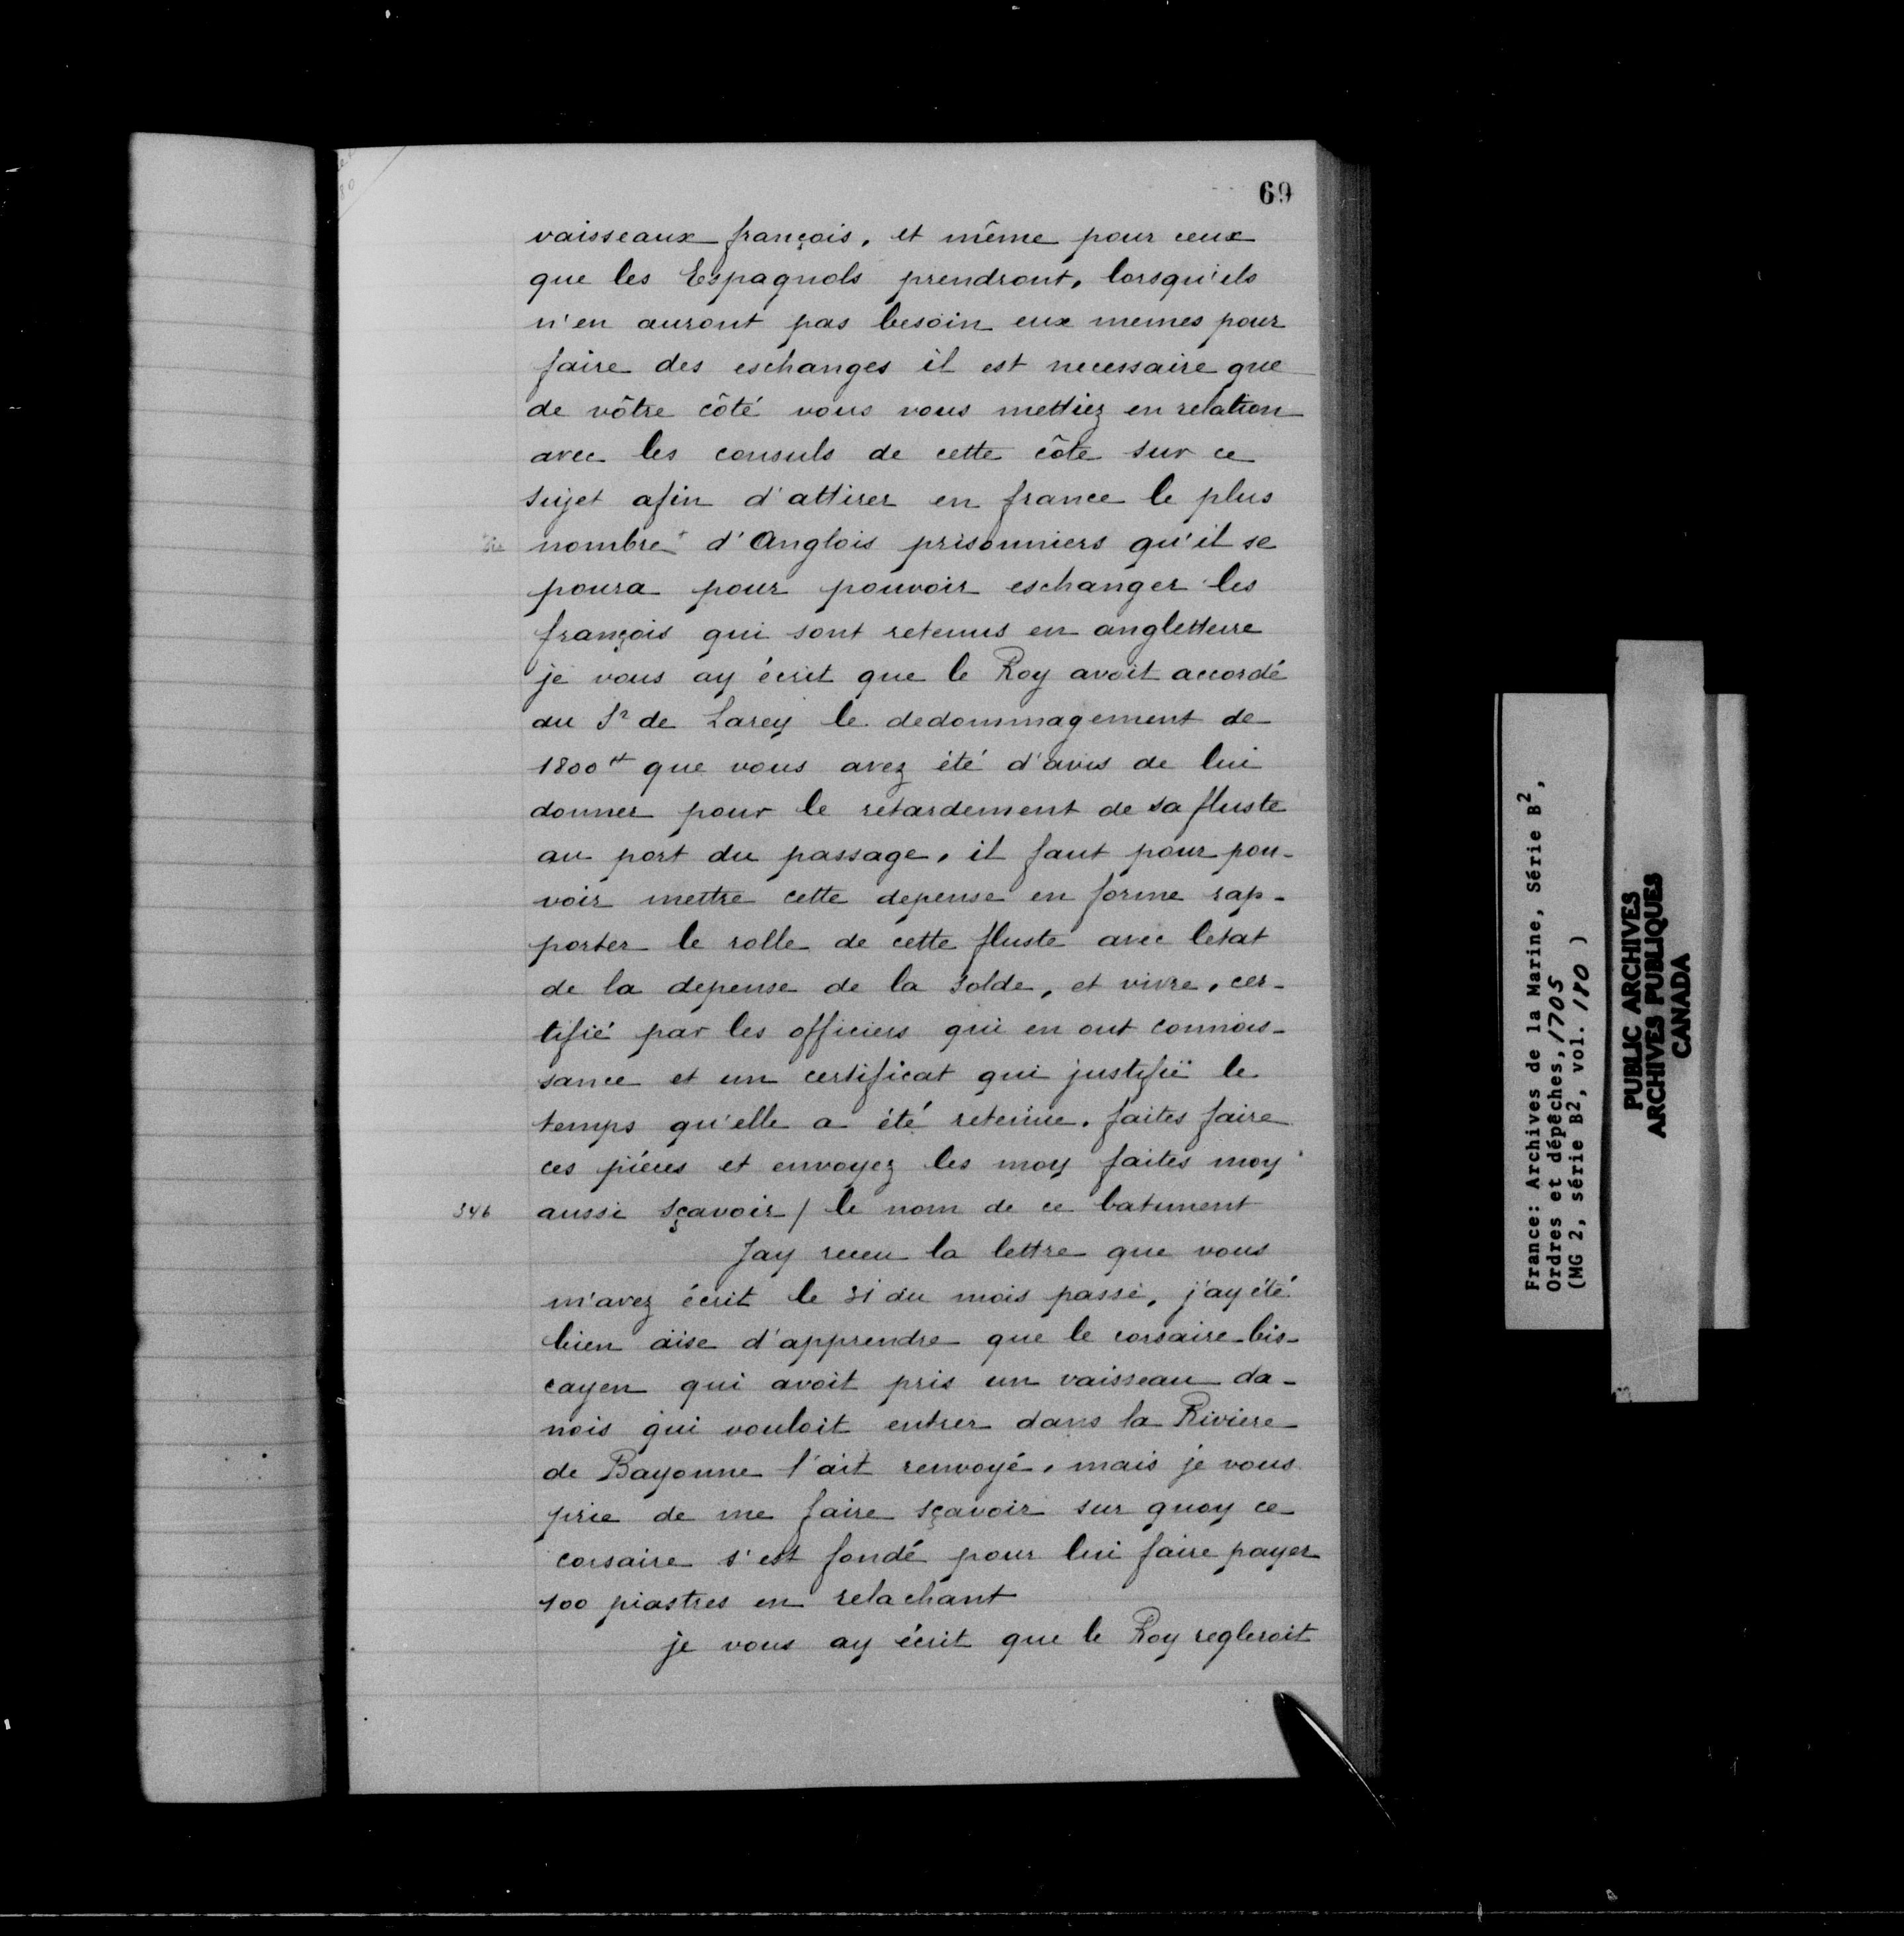 69
vaisseaux françois, et même pour ceux
que les Espagnols prendront, lorsqu'ils
n'en auront pas besoin eux memes pour
faire des eschanges il est necessaire que
de vôtre côté vous vous mettiez en relation
avec les consuls de cette côte sur ce
sujet afin d'attirer en france le plus
nombre + d'Anglois prisonniers qu'il se
poura pour pouvoir eschanger les
françois qui sont retenus en angletterre
je vous ay écrit que le Roy avoit accordé
au Sr de Larey le dedommagement de
1800 ₶ que vous avez été d'avis de lui
donner pour le retardement de sa fluste
au port du passage, il faut pour pou-
voir mettre cette depense en forme rap-
porter le rolle de cette fluste avec letat
de la depense de la solde, et vivre, cer-
tifié par les officiers qui en ont connois-
sance et un certificat qui justifië le
temps qu'elle a été retenüe. faites faire
ces piéces et envoyez les moy faites moy
346 aussi sçavoir / le nom de ce batiment
Jay receu la lettre que vous
m'avez écrit le 31 du mois passé, j'ay été
bien aise d'apprendre que le corsaire bis-
cayen qui avoit pris un vaisseau da-
nois qui vouloit entrer dans la Riviere
de Bayonne l'ait renvoyé, mais je vous
prie de me faire sçavoir sur quoy ce
corsaire s'est fondé pour lui faire payer
100 piastres en relachant
je vous ay écrit que le Roy regleroit
France: Archives de la Marine, Série B²,
Ordres et dépêches, 1705
(MG 2, série B², vol. 180 )
PUBLIC ARCHIVES
ARCHIVES PUBLIQUES
CANADA